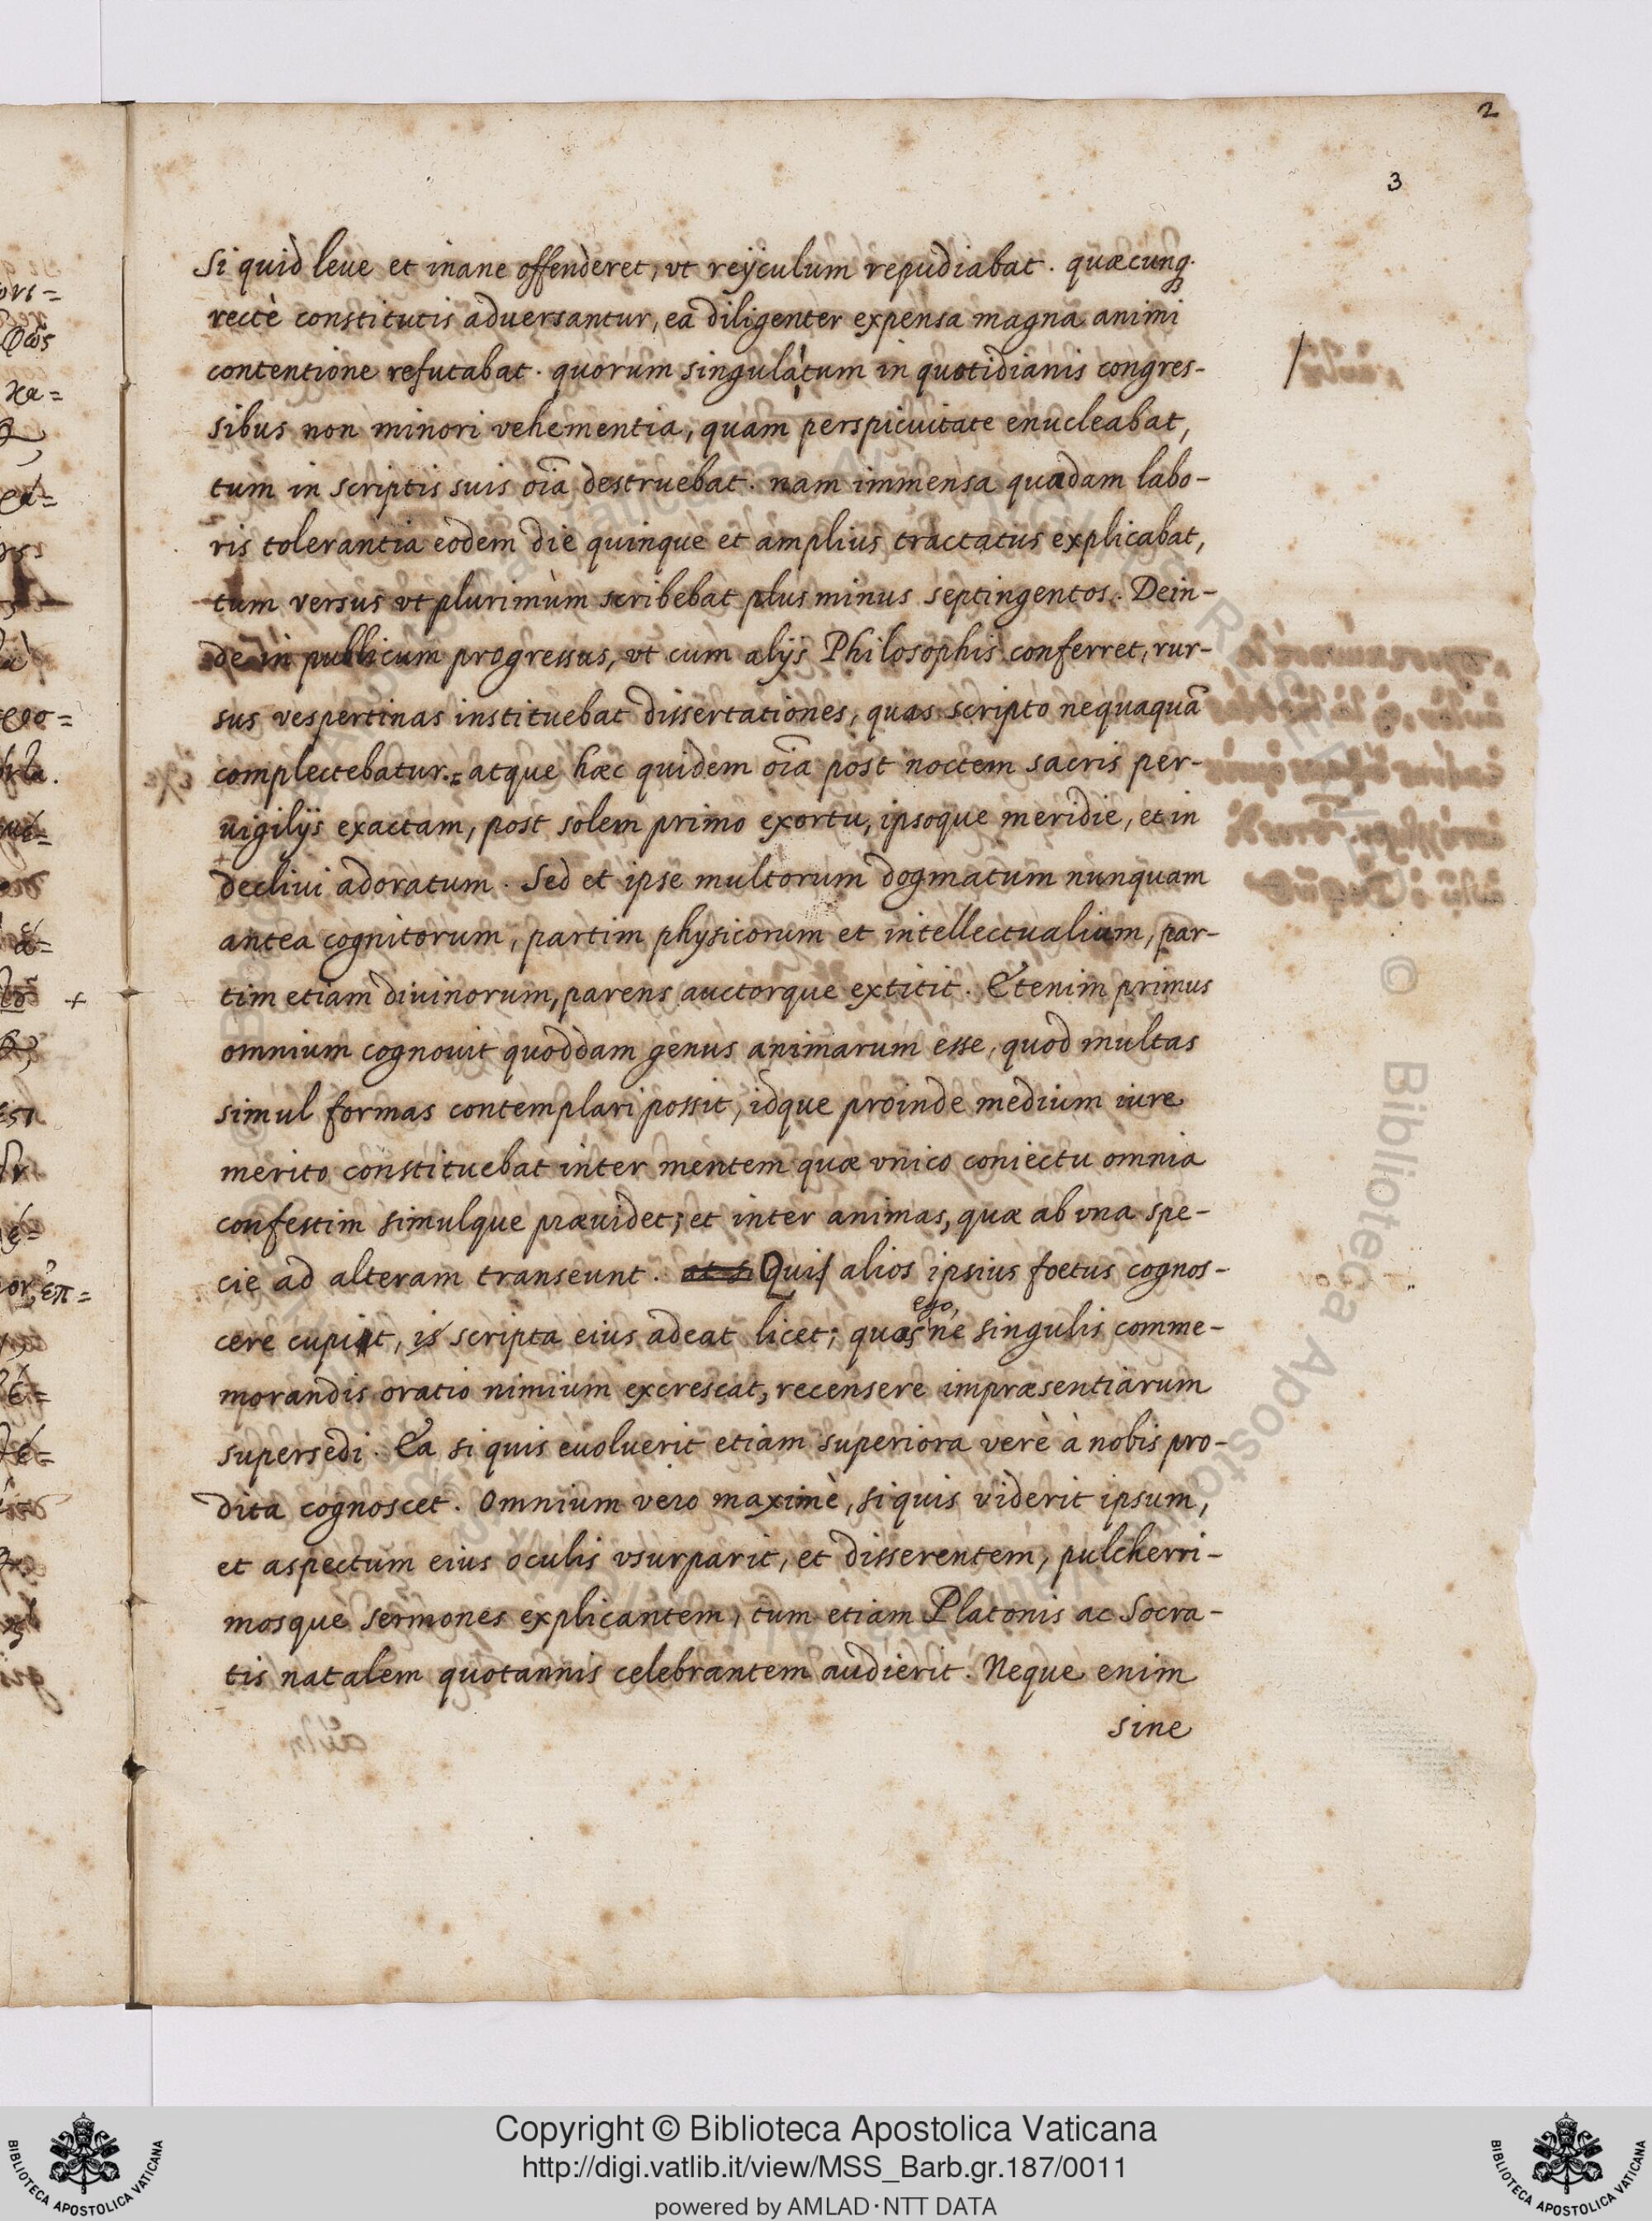 2
3
Si quid leue et inane offenderet, vt reijculum repudiabat. quæcunq.
rectè constitutis aduersantur, ea diligenter expensa magna animi
contentione refutabat. quorum singula tum in quotidianis congres-
sibus non minori vehementia, quam perspicuitate enucleabat,
tum in scriptis suis oīa destruebat. nam immensa quadam labo-
ris tolerantia eodem die quinque et amplius tractatus explicabat,
tum versus vt plurimum scribebat plus minus septingentos. Dein-
de in publicum progressus, vt cum alijs Philosophis conferret, rur-
sus vespertinas instituebat dissertationes, quas scripto nequaquā
complectebatur. atque hæc quidem oīa post noctem sacris per-
uigilijs exactam, post solem primo exortu, ipsoque meridie, et in
decliui adoratum. Sed et ipse multorum dogmatum nunquam
antea cognitorum, partim physicorum et intellectualium, par-
tim etiam diuinorum, parens auctorque extitit. Etenim primus
omnium cognouit quoddam genus animarum esse, quod multas
simul formas contemplari possit, idque proinde medium iure
merito constituebat inter mentem quæ vnico coniectu omnia
confestim simulque præuidet; et inter animas, quæ ab vna spe-
cie ad alteram transeunt. at si Quis alios ipsius foetus cognos-
ego,
cere cupit, is scripta eius adeat licet; quos ne singulis comme-
morandis oratio nimium excrescat, recensere impræsentiarum
supersedi. Ea si quis euoluerit etiam superiora verè à nobis pro-
dita cognoscet. Omnium vero maximè, si quis viderit ipsum,
et aspectum eius oculis vsurparit, et disserentem, pulcherri-
mosque sermones explicantem, tum etiam Platonis ac Socra-
tis natalem quotannis celebrantem audierit. Neque enim
sine
Copyright © Biblioteca Apostolica Vaticana
http://digi.vatlib.it/view/MSS_Barb.gr.187/0011
powered by AMLAD·NTT DATA
BIBLIOTECA APOSTOLICA VATICANA
BIBLIOTECA APOSTOLICA VATICANA